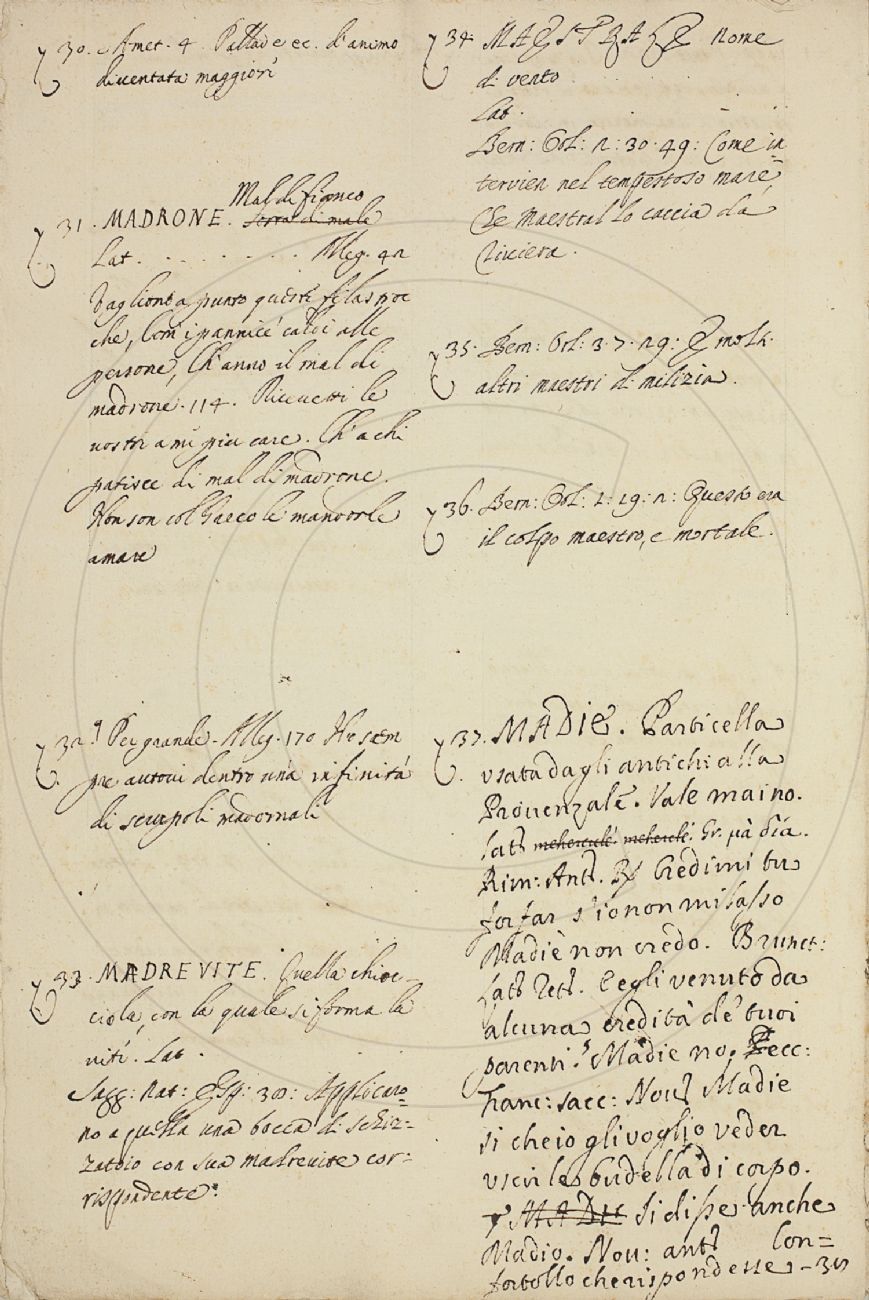 30. Amet. 4. Pallade ec. d'animo
diventata maggiori
31. MADRONE. Mal di fianco
serra di male
Lat. . . . . . . . . Alleg. 42
Vaglion a punto questi
che, com'i pannicei caldi alle
persone, Ch'anno il mal di
madrone. 114. Ricevetti le
vostre a me piu care. Ch'a chi
patisce di mal di madrone.
Non son col Greco le mandorle
amare
32. Per grande. Alleg. 170 Ho sem
pre autoui dentro una infinità
di scrupoli madornali
33. MADREVITE. Quella chioc-
ciola, con la quale si forma la
vite. Lat.
Sagg: Nat: Esp: 300: Applicaro=
no a quella una bocca di schiz=
zatoio con sua madrevite cor=
rispondente.
34. Nome
di vento
Lat.
Bern: Orl: 2: 30. 49: Come in=
tervien nel tempestoso mare,
Che Maestral lo caccia da
riviera.
35. Bern: Orl: 3. 7. 29: E molti
altri maestri di milizia.
36. Bern: Orl: 1: 19: 2: Questo era
il colpo maestro, e mortale.
37. MADIE. Particella
usata dagli antichi alla
Prouenzale. Vale maino.
Lat. mehercule. mehercle. Gr. μὰ δία.
Rim: Ant. Credimi tu
forfar s'io non mi lasso
Madiè non credo. Brunet:
Lat. Ret. E egli venuto da
alcuna eredità de' tuoi
parenti? Madie no.
Franc: sacc: Nou. Madie
si che io gli voglio veder
uscir le budella di corpo.
MADIE Si disse anche
Madio. Nou: ant. Con=
fortollo che rispondesse -